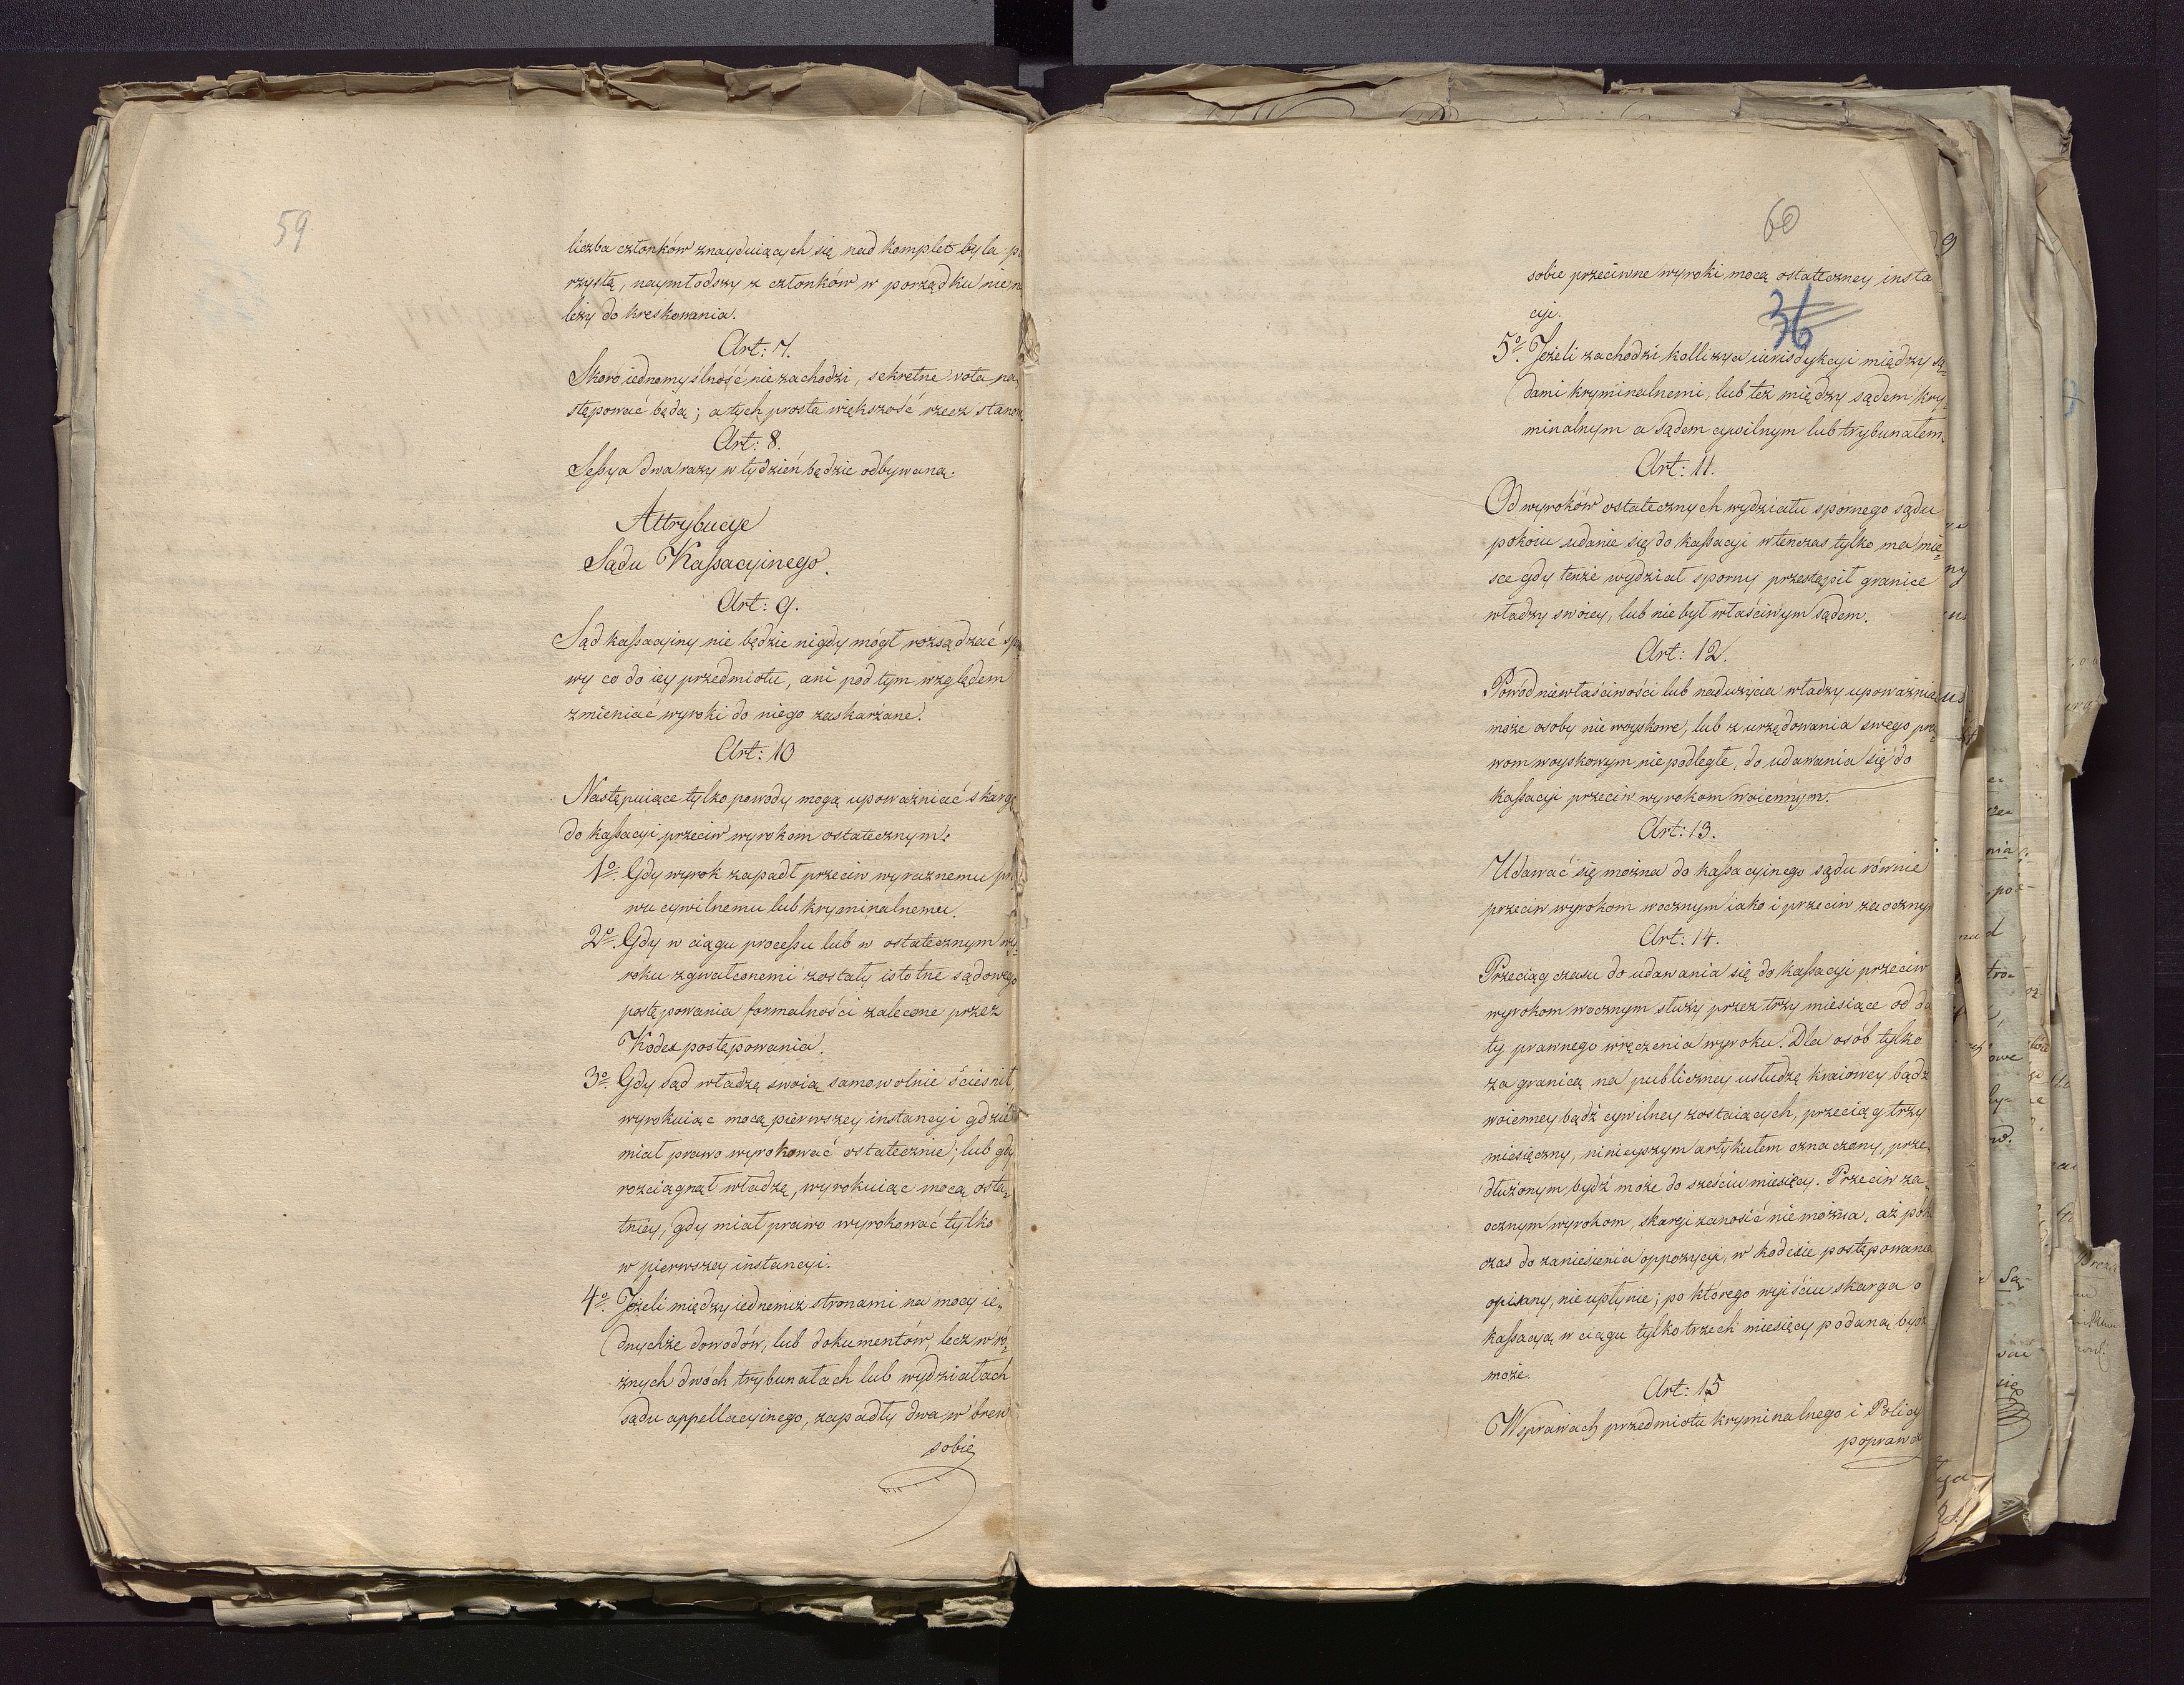 59
liczba członków znayduiących się nad komplet była p
rzystą, naymłodszy z członków w porządku nie n
leży do kreskowania.
Art: 7.
Skoro iednomyślność nie zachodzi, sekretne vota na
stępować będą; a tych prosta większość rzecz stano
Art: 8.
Sessya dwa razy w tydzień będzie odbywana.
Attrybucye
Sądu Kassacyinego.
Art: 9.
Sąd kassacyiny nie będzie nigdy mógł rozsądzać sp
wy co do iey przedmiotu, ani pod tym względem
zmieniać wyroki do niego zaskarżane.
Art: 10
Następuiące tylko powody mogą upoważniać skargę
do kassacyi przeciw wyrokom ostatecznym:
1º. Gdy wyrok zapadł przeciw wyraznemu pr
wu cywilnemu lub kryminalnemu.
2º. Gdy w ciągu processu lub w ostatecznym wy-
roku zgwałconemi zostały istotne sądowego
postępowania formalności zalecone przez
Kodex postępowania.
3º. Gdy sąd władzę swoią samowolnie ścieśnił,
wyrokuiąc mocą pierwszey instancyi gdzie
miał prawo wyrokować ostatecznie; lub gdy
rozciągnął władzę, wyrokuiąc mocą osta-
tniey, gdy miał prawo wyrokować tylko
w pierwszey instancyi.
4º. Jeżeli między iednemiż stronami na mocy ie-
dnychże dowodów, lub dokumentów, lecz w ró-
żnych dwóch trybunałach lub wydziałach
sądu appellacyinego, zapadły dwa w brew
sobie
60
sobie przeciwne wyroki mocą ostateczney insta
cyi.
36
5º. Jeżeli zachodzi kollizya iurisdykcyi między są-
dami kryminalnemi, lub też między sądem kry-
minalnym a sądem cywilnym lub trybunałem.
Art: 11.
Od wyroków ostatecznych wydziału spornego sądu
pokoiu udanie się do kassacyi wtenczas tylko ma miey-
sce gdy tenże wydział sporny przestąpił granice
władzy swoiey, lub nie był właściwym sądem.
Art: 12.
Powód niewłaściwości lub nadużycia władzy upoważnia
może osoby nie woyskowe, lub z urzędowania swego pra-
wom woyskowym nie podległe, do udawania się do
kassacyi przeciw wyrokom woiennym.
Art: 13.
Udawać się można do kassacyinego sądu równie
przeciw wyrokom wocznym iako i przeciw zaocznym
Art: 14.
Przeciąg czasu do udawania się do kassacyi przeciw
wyrokom wocznym służy przez trzy miesiące od da
ty prawnego wręczenia wyroku. Dla osób tylko
za granicą na publiczney usłudze kraiowey bądź
woienney bądź cywilney zostaiących, przeciąg trzy
miesięczny, ninieyszym artykułem oznaczony, prze-
dłużonym bydź może do sześciu miesięcy. Przeciw za-
ocznym wyrokom, skargi zanosić nie można, aż póki
czas do zaniesienia oppozycyi, w kodexie postępowania
opisany, nie upłynie; po którego wyiściu skarga o
kassacyą w ciągu tylko trzech miesięcy podaną bydź
może.
Art: 15
W sprawach przedmiotu kryminalnego i Policy
popraw